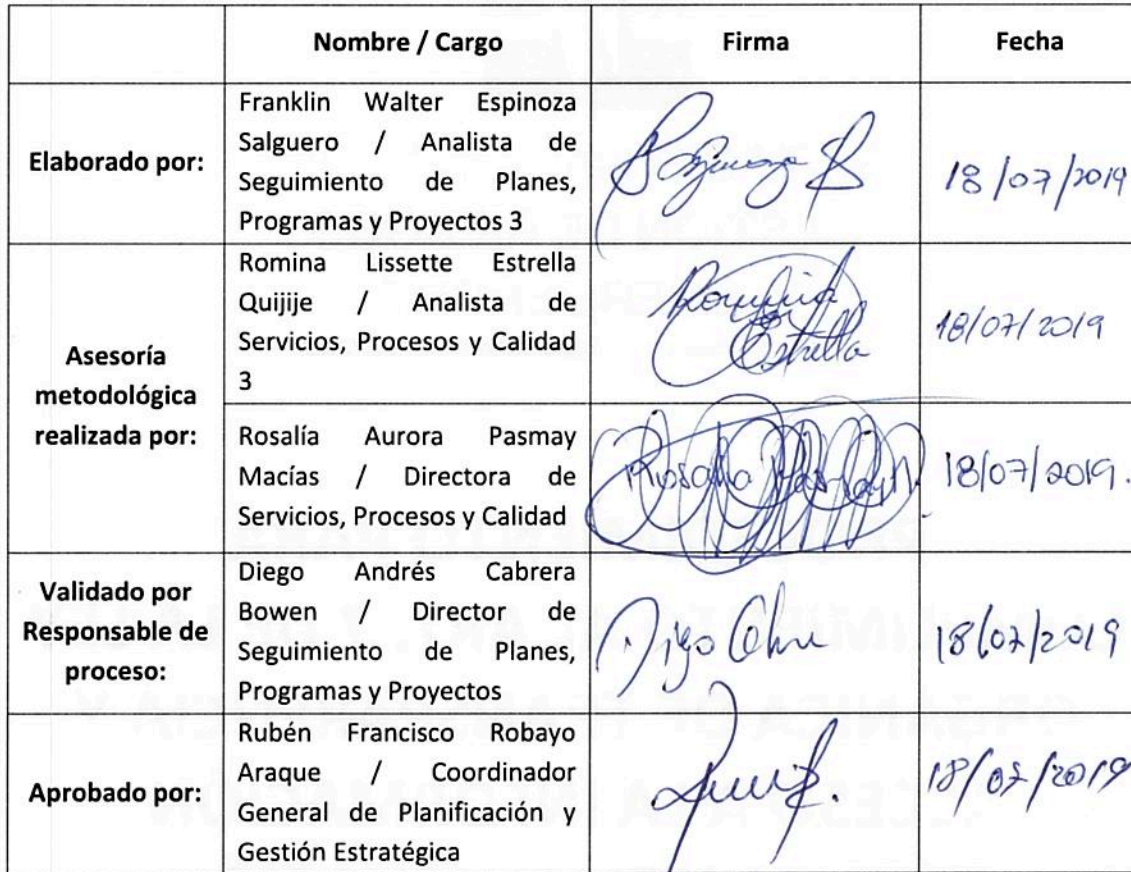 Nombre / Cargo Firma Fecha
Elaborado por:
Franklin Walter Espinoza
Salguero / Analista de
Seguimiento de Planes,
Programas y Proyectos 3
18/07/2019
Asesoría
metodológica
realizada por:
Romina Lissette Estrella
Quijije / Analista de
Servicios, Procesos y Calidad
3
Romina
Estrella
18/07/2019
Rosalía Aurora Pasmay
Macías / Directora de
Servicios, Procesos y Calidad
Rosalía Pasmay M
18/07/2019.
Validado por
Responsable de
proceso:
Diego Andrés Cabrera
Bowen / Director de
Seguimiento de Planes,
Programas y Proyectos
Diego
18/07/2019
Aprobado por:
Rubén Francisco Robayo
Araque / Coordinador
General de Planificación y
Gestión Estratégica
18/07/2019